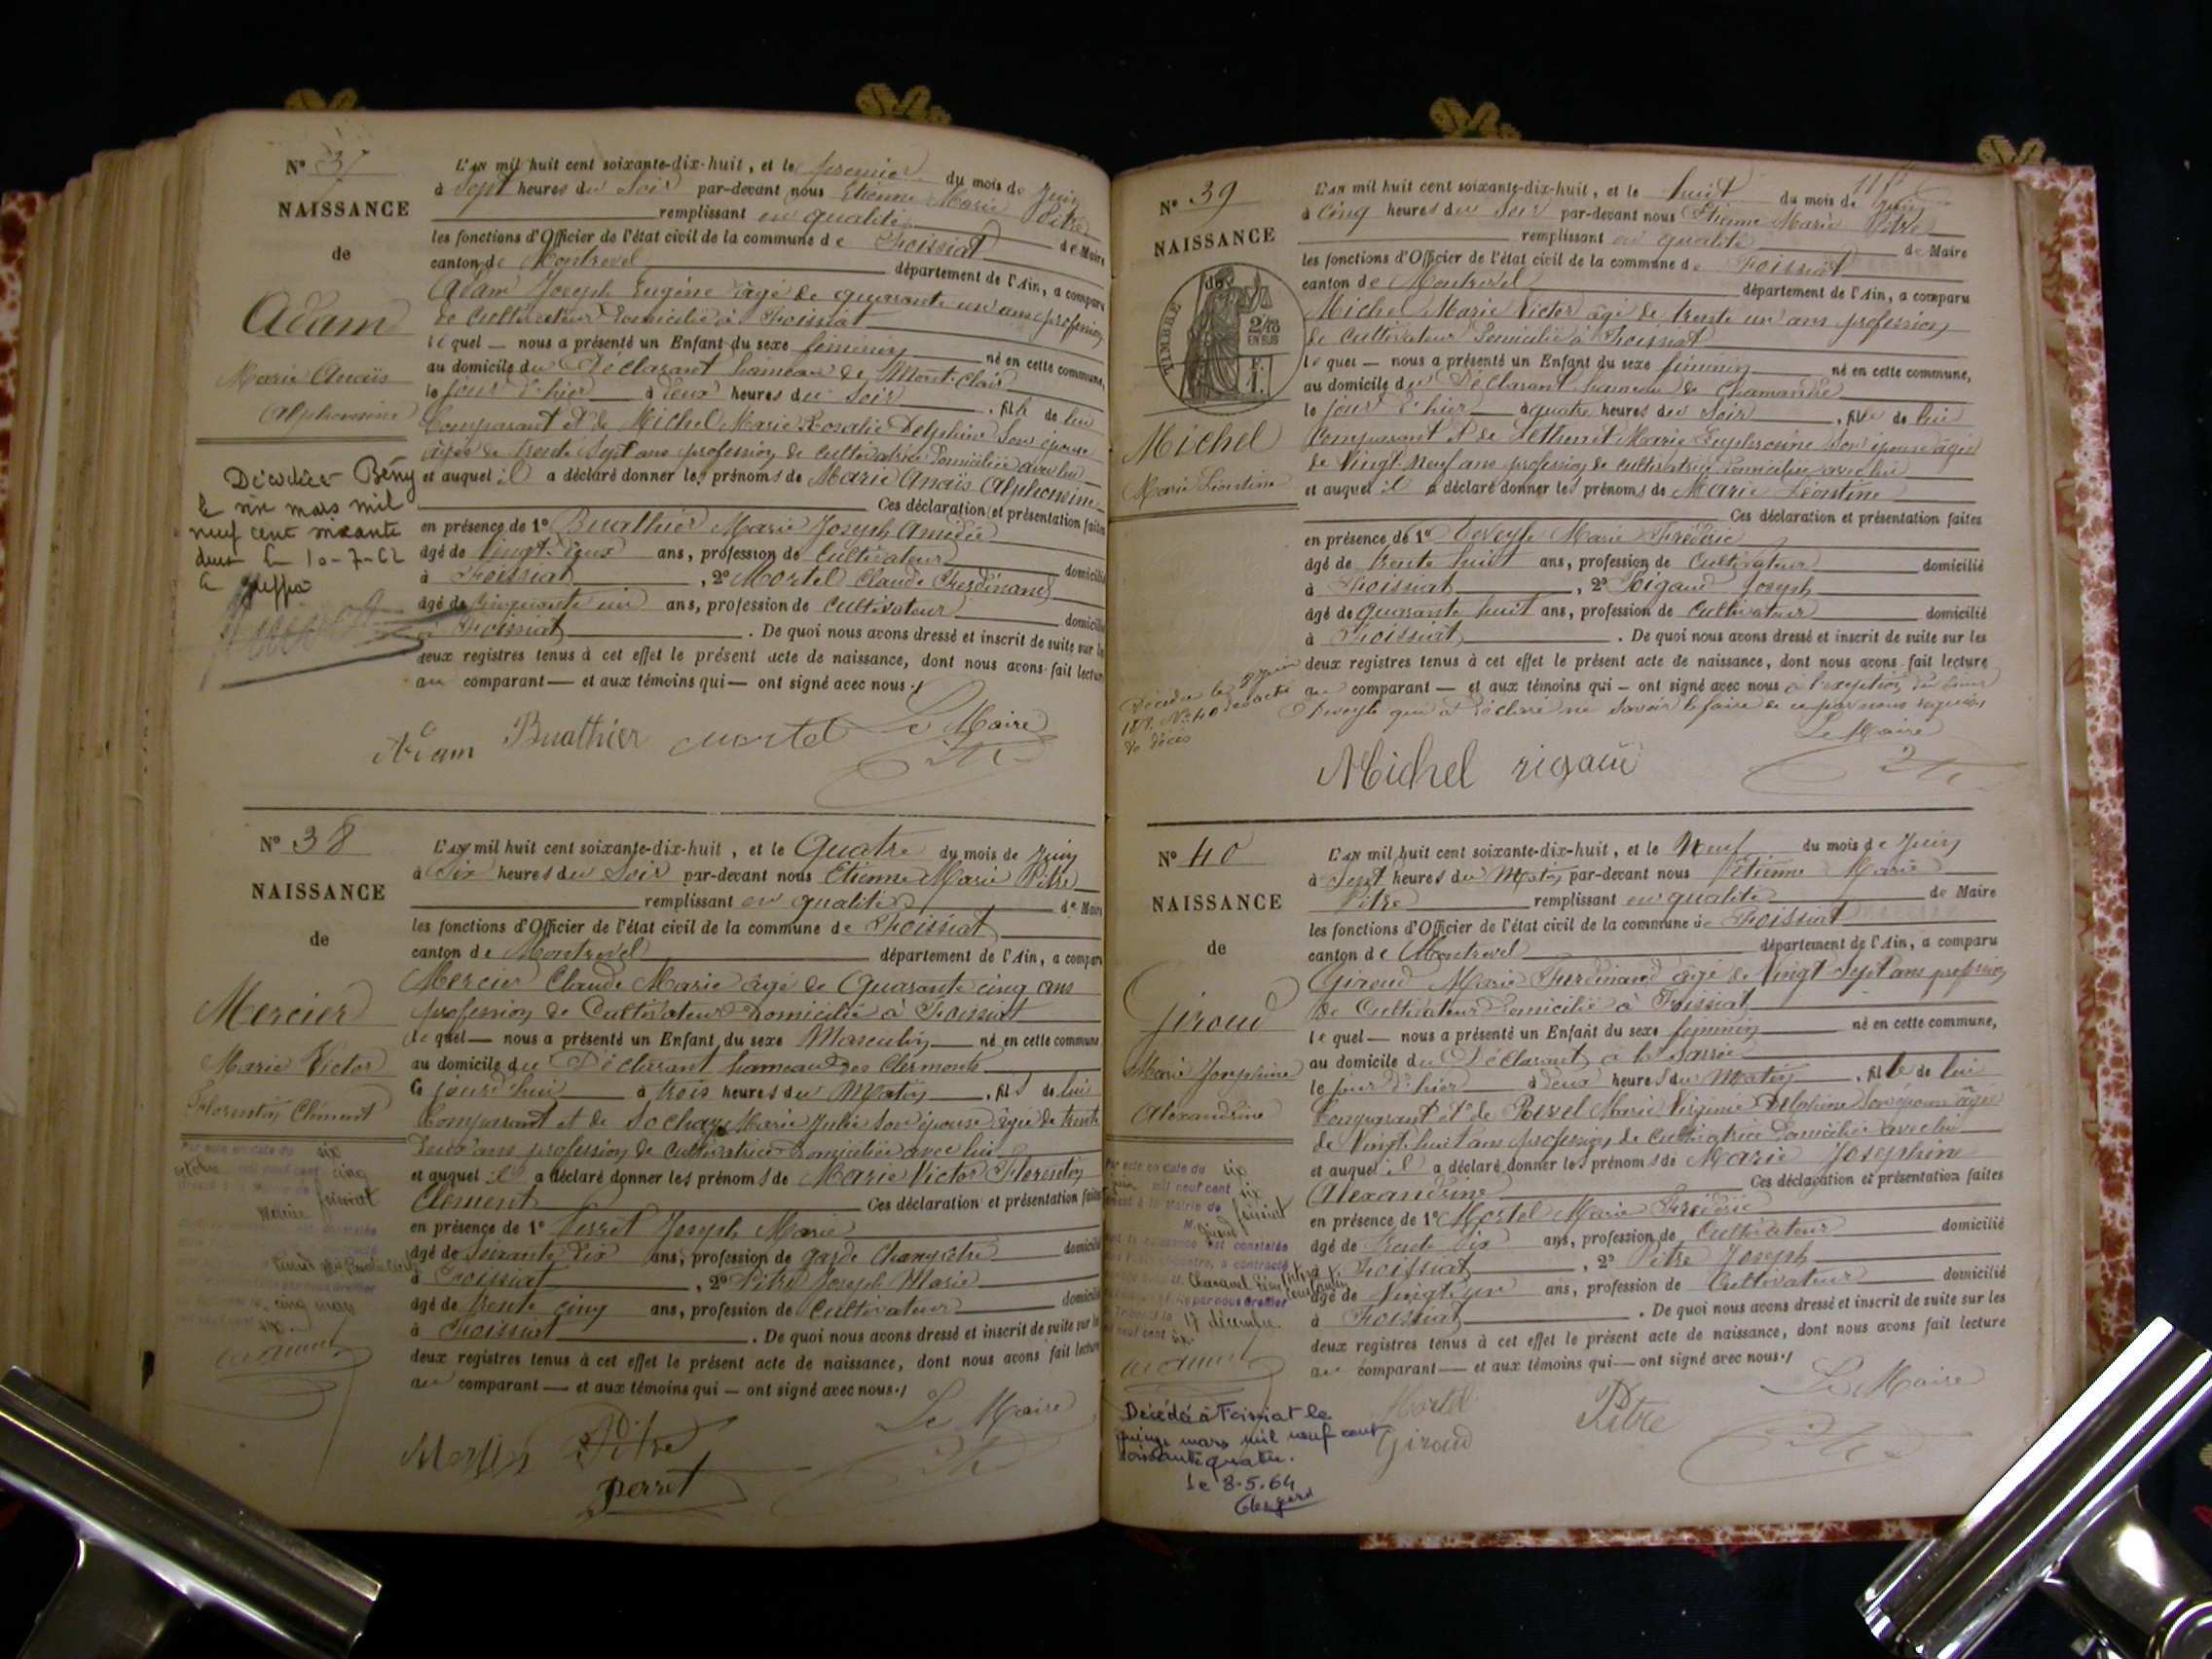 N° 37
NAISSANCE
de
Adam
Marie Anaïs
Alphonsine
Décédée Bény
le six mars mil
neuf cent soixante
deux le 10-7-62
L'AN mil huit cent soixante-dix-huit, et le premier du mois de Juin
à Sept heures du Soir par-devant nous Etienne Marie Pitre
remplissant en qualité de Maire
les fonctions d'Officier de l'état civil de la commune de Foissiat
canton de Montrevel département de l'Ain, a comparu
Adam Joseph Eugène âgé de quarante un ans profession
de Cultivateur domicilié à Foissiat
lequel — nous a présenté un Enfant du sexe féminin né en cette commune,
au domicile du Déclarant hameau de Mont-Clair
le jour d'hier à deux heures du Soir , fille de lui
Comparant et de Michel Marie Rosalie Delphine son épouse
âgée de trente Sept ans profession de cultivatrice domiciliée avec lui
et auquel il a déclaré donner les prénoms de Marie Anaïs Alphonsine
Ces déclaration et présentation faites
en présence de 1° Buathier Marie Joseph Amédée
âgé de Vingt-deux ans, profession de Cultivateur domicilié
à Foissiat , 2° Mortel Claude Ferdinand
âgé de Cinquante un ans, profession de Cultivateur domicilié
à Foissiat . De quoi nous avons dressé et inscrit de suite sur les
deux registres tenus à cet effet le présent acte de naissance, dont nous avons fait lecture
au comparant — et aux témoins qui — ont signé avec nous ./
Adam Buathier Mortel Le Maire
N° 38
NAISSANCE
de
Mercier
Marie Victor
Florentin Clément
L'AN mil huit cent soixante-dix-huit, et le Quatre du mois de Juin
à Six heures du Soir par-devant nous Etienne Marie Pitre
remplissant en qualité de Maire
les fonctions d'Officier de l'état civil de la commune de Foissiat
canton de Montrevel département de l'Ain, a comparu
Mercier Claude Marie âgé de Quarante cinq ans
profession de Cultivateur domicilié à Foissiat
lequel — nous a présenté un Enfant du sexe Masculin né en cette commune
au domicile du Déclarant hameau des Clermonts
Ce jourd'hui à trois heures du Matin , fils de lui
Comparant et de Sochay Marie Julie son épouse âgée de trente
deux ans profession de cultivatrice domiciliée avec lui
et auquel il a déclaré donner les prénoms de Marie Victor Florentin
Clément Ces déclaration et présentation faites
en présence de 1° Perret Joseph Marie
âgé de Soixante dix ans, profession de garde Champêtre domicilié
à Foissiat , 2° Pitre Joseph Marie
âgé de trente cinq ans, profession de Cultivateur domicilié
à Foissiat . De quoi nous avons dressé et inscrit de suite sur les
deux registres tenus à cet effet le présent acte de naissance, dont nous avons fait lecture
au comparant — et aux témoins qui — ont signé avec nous ./
Pitre Le Maire
perret
N° 39
NAISSANCE
de
TIMBRE
Michel
Marie Léontine
L'AN mil huit cent soixante-dix-huit, et le huit du mois de Juin
à Cinq heures du Soir par-devant nous Etienne Marie Pitre
remplissant en qualité de Maire
les fonctions d'Officier de l'état civil de la commune de Foissiat
canton de Montrevel département de l'Ain, a comparu
Michel Marie Victor âgé de trente un ans profession
de Cultivateur domicilié à Foissiat
lequel — nous a présenté un Enfant du sexe féminin né en cette commune,
au domicile du Déclarant hameau de Chamandré
le jour d'hier à quatre heures du Soir , fille de lui
Comparant et de Marie Euphrosine son épouse âgée
de Vingt Neuf ans profession de cultivatrice domiciliée avec lui
et auquel il a déclaré donner les prénoms de Marie Léontine
Ces déclaration et présentation faites
en présence de 1° Deveyle Marie Frédéric
âgé de trente huit ans, profession de Cultivateur domicilié
à Foissiat , 2° Rigaud Joseph
âgé de quarante huit ans, profession de Cultivateur domicilié
à Foissiat . De quoi nous avons dressé et inscrit de suite sur les
deux registres tenus à cet effet le présent acte de naissance, dont nous avons fait lecture
au comparant — et aux témoins qui — ont signé avec nous à l'exception du
Deveyle qui a déclaré ne savoir le faire de ce par nous requis
Le Maire
Michel rigaud
N° 40
NAISSANCE
de
Giroud
Marie Joséphine
Alexandrine
Décédée à Foissiat le
quinze mars mil neuf cent
soixante quatre.
le 8.5.64
L'AN mil huit cent soixante-dix-huit, et le Neuf du mois de Juin
à Sept heures du Matin par-devant nous Etienne Marie
Pitre remplissant en qualité de Maire
les fonctions d'Officier de l'état civil de la commune de Foissiat
canton de Montrevel département de l'Ain, a comparu
Giroud Marie Ferdinand âgé de Vingt Sept ans profession
de Cultivateur domicilié à Foissiat
lequel — nous a présenté un Enfant du sexe féminin né en cette commune,
au domicile du Déclarant à la
le jour d'hier à deux heures du Matin , fille de lui
Comparant et de Revel Marie Virginie Delphine son épouse âgée
de Vingt-huit ans profession de cultivatrice domiciliée avec lui
et auquel il a déclaré donner les prénoms de Marie Joséphin
Alexandrine Ces déclaration et présentation faites
en présence de 1° Mortel Marie Frédéric
âgé de trente Six ans, profession de Cultivateur domicilié
à Foissiat , 2° Pitre Joseph
âgé de Vingt un ans, profession de Cultivateur domicilié
à Foissiat . De quoi nous avons dressé et inscrit de suite sur les
deux registres tenus à cet effet le présent acte de naissance, dont nous avons fait lecture
au comparant — et aux témoins qui — ont signé avec nous ./
Mortel Pitre Le Maire
Giroud